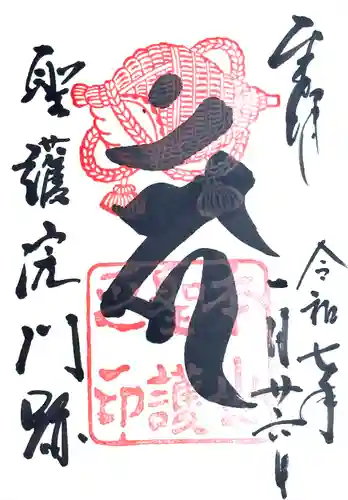 奉拝
令和七年
一月廿六日
聖護院門跡
本山
聖護
印